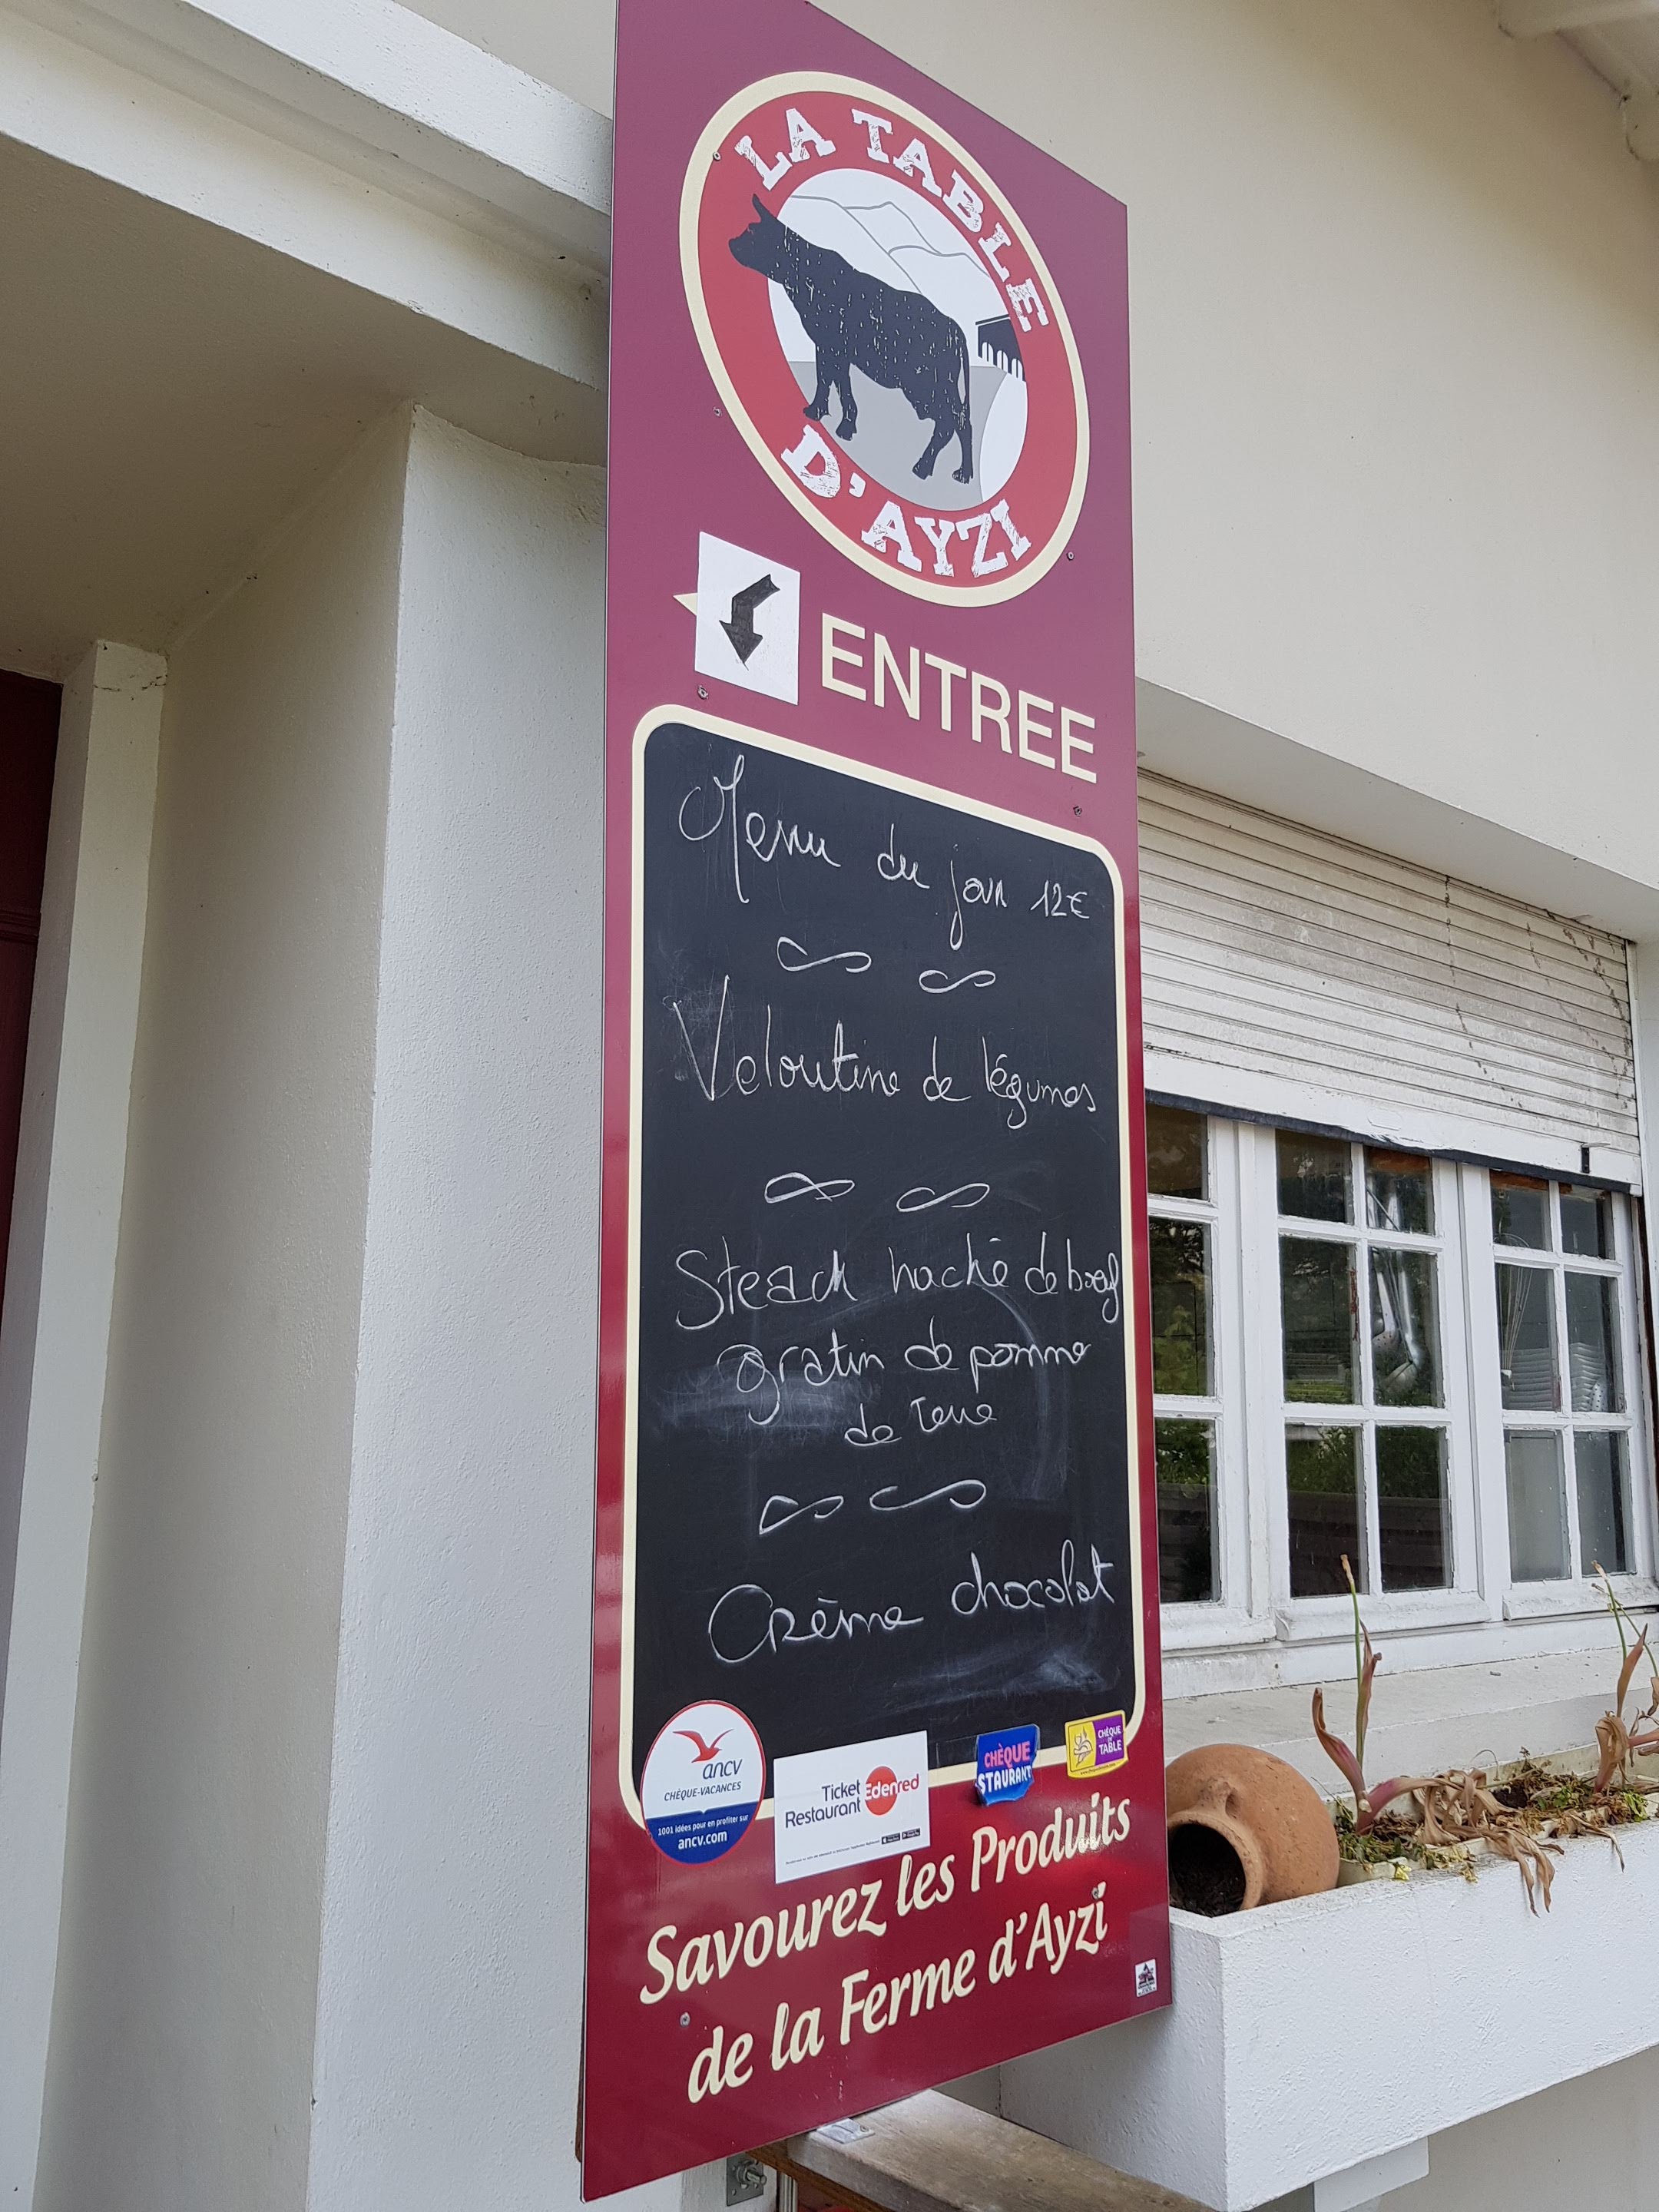 LA TABLE
D'AYZI
ENTREE
Menu du jour 12€
Veloutine de légumes
Steack haché de boeuf
gratin de pomme
de terre
Crème chocolat
ancv
CHÈQUE-VACANCES
1001 idées pour en profiter sur
ancv.com
Ticket
Restaurant
Edenred
CHÈQUE
STAURANT
CHÈQUE
DE
TABLE
Savourez les Produits
de la Ferme d'Ayzi